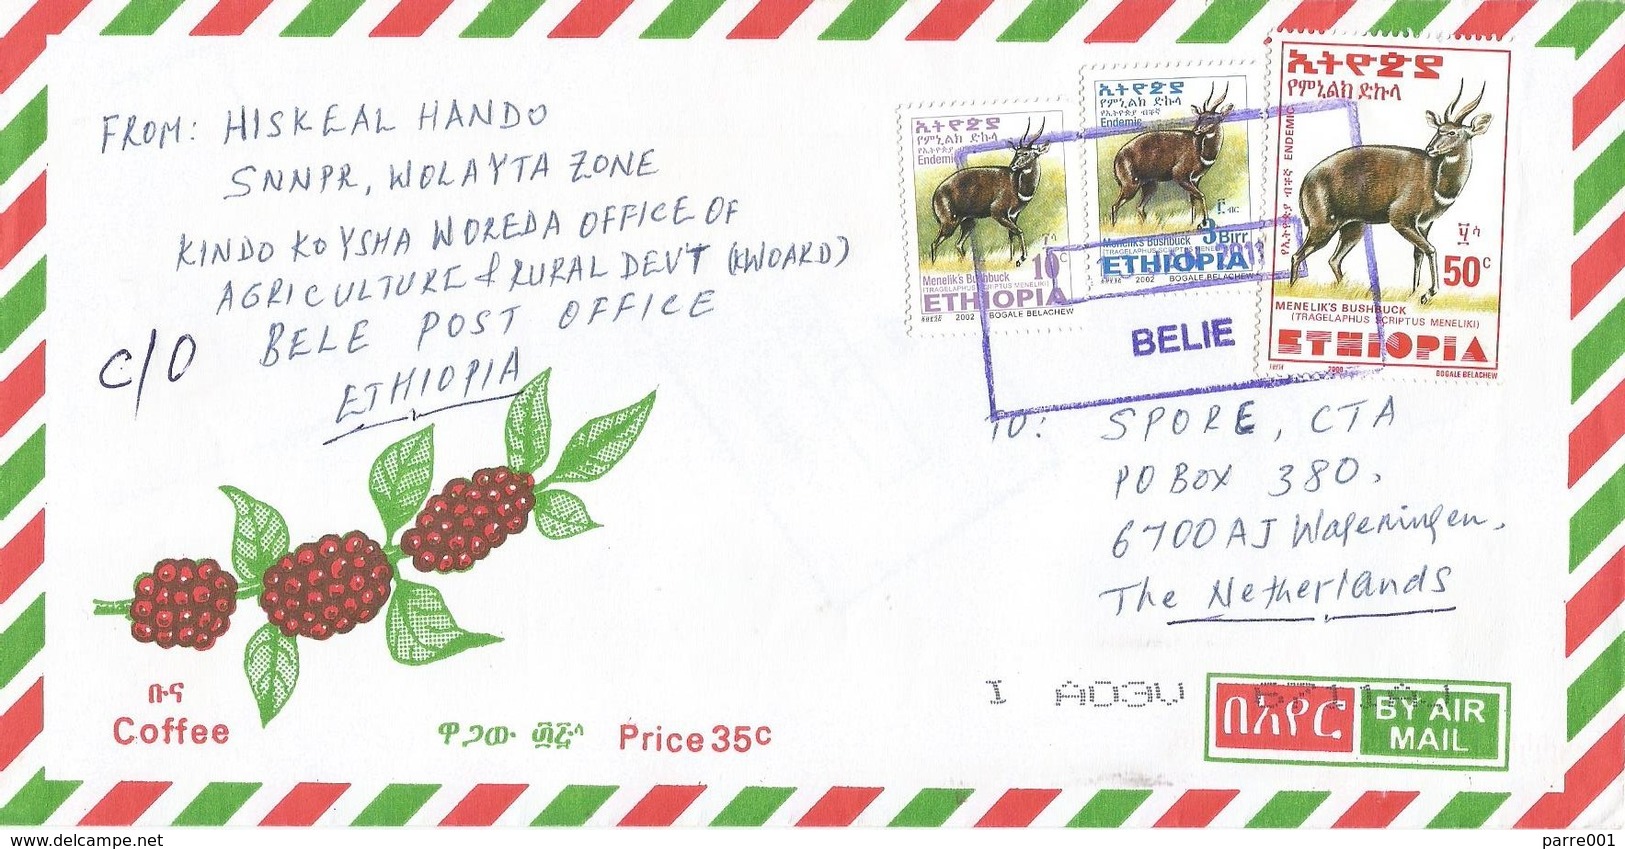 FROM: HISKEAL HANDO
SNNPR, WOLAYTA ZONE
KINDO KOYSHA WOREDA OFFICE OF
AGRICULTURE & RURAL DEV'T (KWOARD)
C/O BELE POST OFFICE
ETHIOPIA
ኢትዮጵያ
የምኒልክ ድኩላ
የኢትዮጵያ ብቸኛ
Endemic
10c
Menelik's Bushbuck
(TRAGELAPHUS SCRIPTUS MENELIKI)
ETHIOPIA
2002 BOGALE BELACHEW
ኢትዮጵያ
የምኒልክ ድኩላ
የኢትዮጵያ ብቸኛ
Endemic
፫ ብር
3 Birr
Menelik's Bushbuck
(TRAGELAPHUS SCRIPTUS MENELIKI)
ETHIOPIA
2002 BOGALE BELACHEW
ኢትዮጵያ
የምኒልክ ድኩላ
የኢትዮጵያ ብቸኛ ENDEMIC
፶ ሳ
50c
MENELIK'S BUSHBUCK
(TRAGELAPHUS SCRIPTUS MENELIKI)
ETHIOPIA
2000 BOGALE BELACHEW
2011
BELIE
TO: SPORE, CTA
PO BOX 380,
6700 AJ Wageningen,
The Netherlands
ቡና
Coffee
ዋጋው ፴፭ሳ Price 35c
በአየር
BY AIR
MAIL
www.delcampe.net
parre001